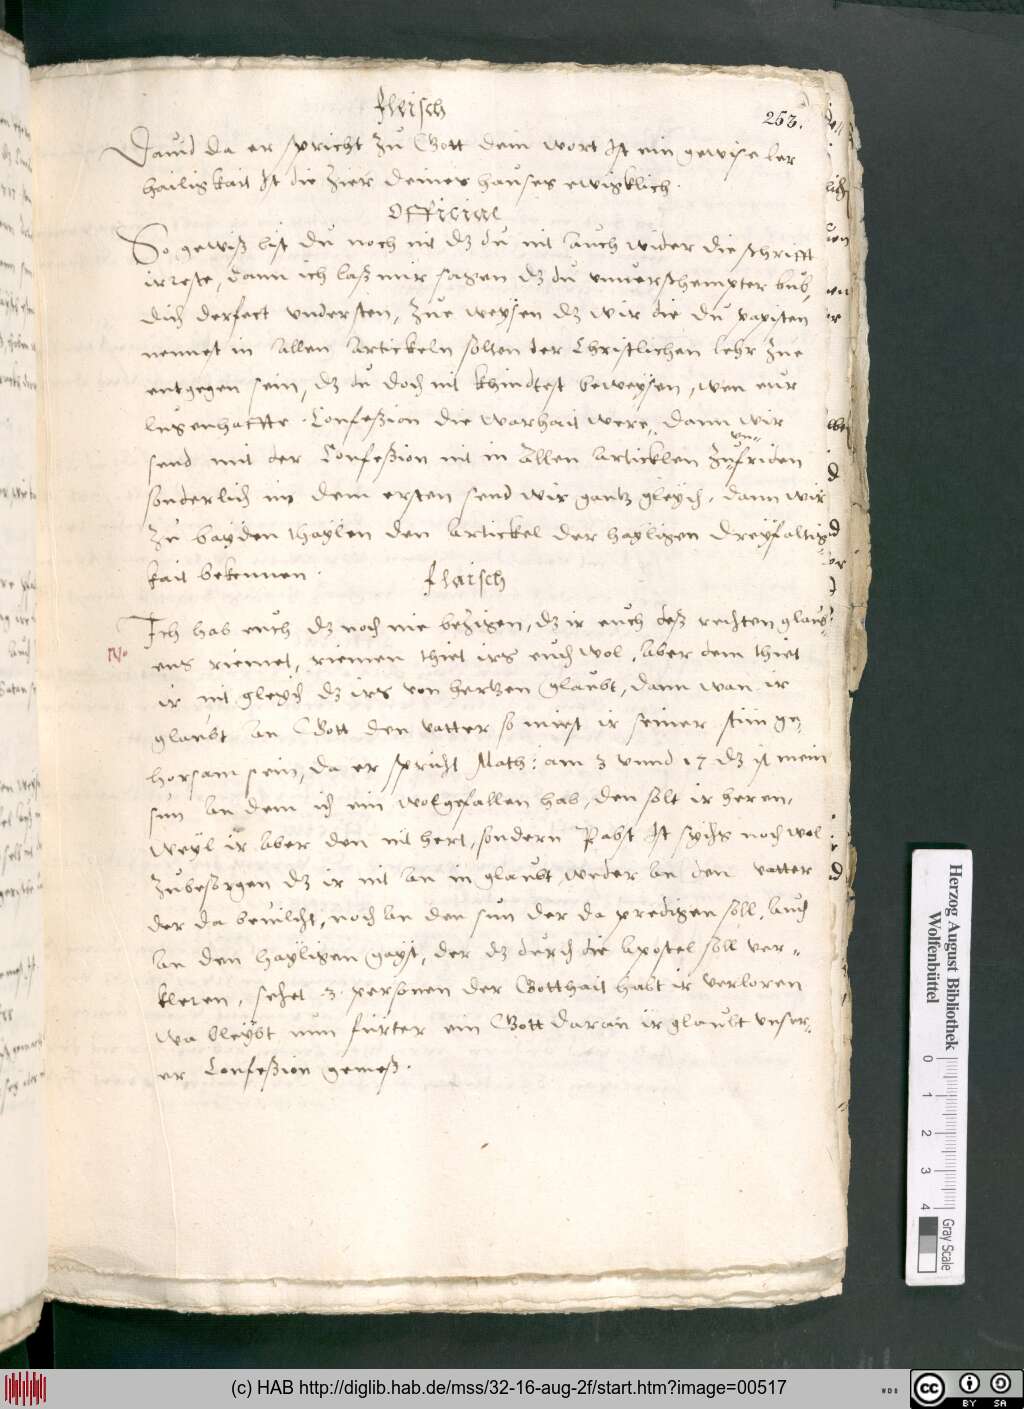 fleisch
253.
Dauid da er spricht zu Gott dein wort ist ein gewise ler
hailigkait ist die Zier deines hauses ewigklich.
Official
So gewiß bist du noch nit dz du nit auch wider die schrifft
irrest, dann ich laß mir sagen dz du vnuerschempter bub,
dich derfest vndersten, zue weysen dz wir die du papisten
nennest in allen Artickeln solten der Christlichen lehr zue
entgegen sein, dz du doch nit khindtest beweysen, wen eur
lugenhaffte Confeßion die warhait were, dann wir
send mit der Confeßion nit in allen Articklen zu vn-friden
sonderlich in dem ersten send wir gantz gleych, dann wir
zu bayden thaylen den Artickel der hayligen Dreyfaltig
kait bekennen.
flaisch
Ich hab euch dz noch nie bezigen, dz ir euch deß rechten glaub-
ens riemet, riemen thiet irs euch wol, aber dem thiet
ir nit gleych dz irs von hertzen glaubt, dann wan ir
glaubt an Gott den vatter so miest ir seiner stim ge-
horsam sein, da er spricht Math: am 3 vnnd 17 dz ist mein
sun an dem ich ein wolgefallen hab, den solt ir heren,
Weyl ir aber den nit hert, sondern Pabst ist noch wol
zubesorgen dz ir nit an in glaubt, weder an den vatter
der da beuilcht, noch an den sun der da predigen soll, auch
an den hayligen Gayst, der dz durch die Apostel soll ver-
kleren, sehet 3. personen der Gotthait habt ir verloren
wa bleybt nun furter ein Gott daran ir glaubt vnser-
er Confeßion gemeß.
Herzog August Bibliothek
Wolfenbüttel
0 1 2 3 4
Gray Scale
(c) HAB http://diglib.hab.de/mss/32-16-aug-2f/start.htm?image=00517
WDB
cc BY SA